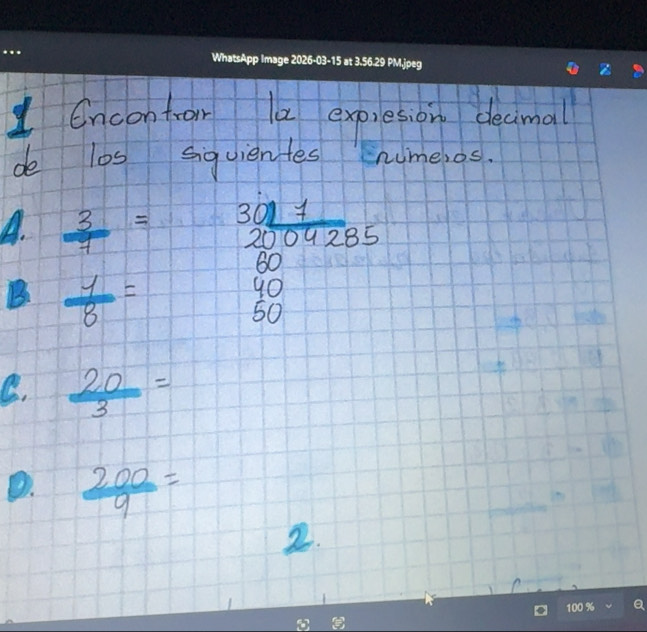 WhatsApp Image 2026-03-15 at 3.56.29 PM.jpeg
1 Encontrar la expresión decimal
de los siguientes números.
A. 3/7 = 30 7
20 04285
60
B. 7/8 = 40
50
C. 20/3 =
D. 200/9 =
2.
100 %